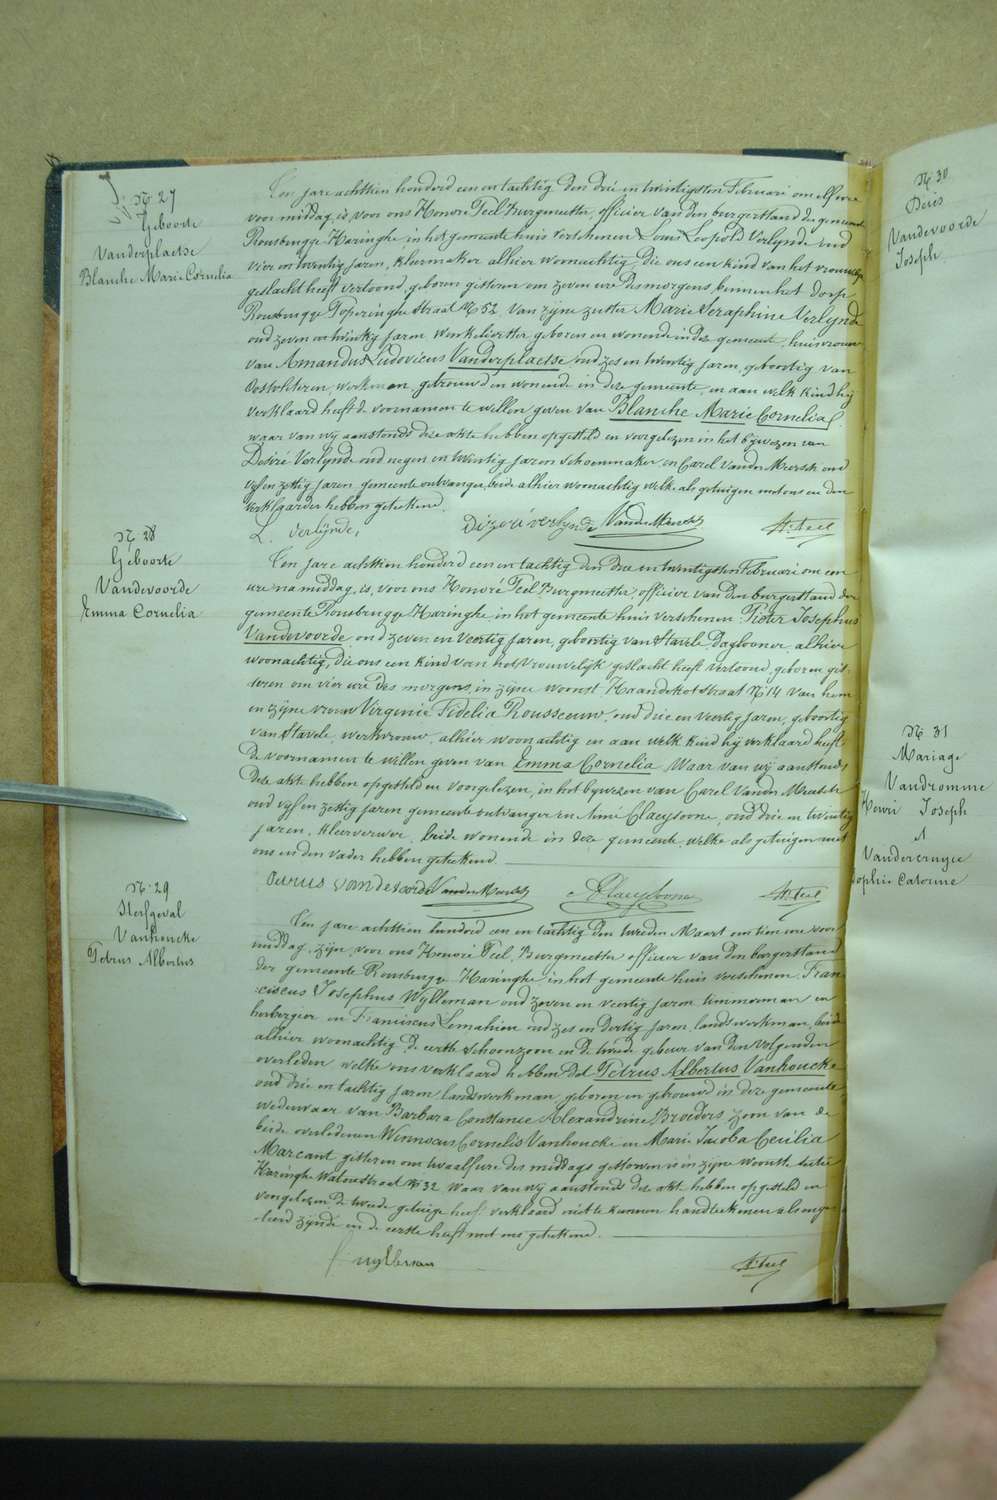 N. 27
Geboorte
Vanderplaetse
Blanche Marie Cornelia
Een jare achttien honderd een en tachtig den drie en twintigsten Februari om elf ure
voor middag, is voor ons Honoré Feel Burgmeester, officier van den burgerstand der gemeente
Rousbrugge Haringhe, in het gemeente huis verschenen Louis Leopold Verlynde oud
vier en twintig jaren, kleermaker alhier woonachtig, die ons een kind van het vrouwelijk
geslacht heeft vertoond, geboren gisteren om zeven ure des morgens, binnen het dorp
Rousbrugge Poperinghe straat N 52, van zyne zuster Marie Seraphine Verlynde
oud zeven en twintig jaren werkeliester geboren en wonende in deze gemeente, huisvrouw
van Amandus Ludovicus Vanderplaetse oud zes en twintig jaren, geboortig van
Oostvleteren, werkman, getrouwd en wonende in deze gemeente, en aan welk kind hy
verklaard heeft de voornamen te willen geven van Blanche Marie Cornelia
waar van wy aanstonds deze akte hebben opgesteld en voorgelezen in het bywezen van
Desiré Verlynde oud negen en twintig jaren schoenmaker en Carel Vander Mersch oud
vyf en zestig jaren gemeente ontvanger, beide alhier woonachtig welke als getuigen met ons en den
verklaarder hebben geteekend.
L. Verlynde, Dizeré verlynde VanderMersch H. Feel
N. 28
Geboorte
Vandevoorde
Emma Cornelia
Een jare achttien honderd een en tachtig den drie en twintigsten Februari om een
ure na middag, is, voor ons Honoré Feel Burgmeester, officier van den burgerstand der
gemeente Rousbrugge Haringhe in het gemeente huis verschenen Pieter Josephus
Vandevoorde, oud zeven en veertig jaren, geboortig van Stavele, daglooner, alhier
woonachtig, die ons een kind van het vrouwelijk geslacht heeft vertoond, geboren gis-
teren om vier ure des morgens, in zijne woonst Haandekotstraat N 14 van hem
en zijne vrouw Virginie Fidelia Rousseeuw, oud drie en veertig jaren, geboortig
van Stavele, werkvrouw, alhier woonachtig en aan welk kind hij verklaard heeft
de voornamen te willen geven van Emma Cornelia. Waar van wij aanstonds
deze akte hebben opgesteld en voorgelezen, in het bijwezen van Carel Vander Mersch
oud vyf en zestig jaren gemeente ontvanger en Aimé Claeysoone, oud drie en twintig
jaren, kleerverwer, beide wonende in deze gemeente welke als getuigen met
ons en den vader hebben geteekend.
vandevoorde VanderMersch Claeysoone H. Feel
N. 29
Sterfgeval
Vanhoucke
Petrus Albertus
Een jare achttien honderd een en tachtig den tweeden Maart om tien ure voor
middag, zijn, voor ons Honoré Feel, Burgmeester officier van den burgerstand
der gemeente Rousbrugge Haringhe in het gemeente huis verschenen Fran-
ciscus Josephus Wylleman oud zeven en veertig jaren timmerman en
herbergier en Franciscus Lemahieu oud zes en dertig jaren, landswerkman, beide
alhier woonachtig, de eerste schoonzoon en de tweede gebuer van den volgenden
overleden welke ons verklaard hebben dat Petrus Albertus Vanhoucke
oud drie en tachtig jaren, landswerkman, geboren en getrouwd in deze gemeente
weduwaar van Barbara Constance Alexandrine Broeders zoon van de
beide overledenen Winnocus Cornelis Vanhoucke en Marie Jacoba Cecilia
Marcant gisteren om twaalf ure des middags gestorven is in zijne woonste
Haringhe Watoustraat N 32. Waar van wij aanstonds deze akte hebben opgesteld en
voorgelezen de tweede getuige heeft verklaard niet te kunnen handteekenen als onge-
leerd zijnde en de eerste heeft met ons geteekend.
Wylleman H. Feel
N. 30
Vandevoorde
Joseph
N. 31
Mariage
Vandromme
Henri Joseph
&
Vandercruyce
Sophie Catorine